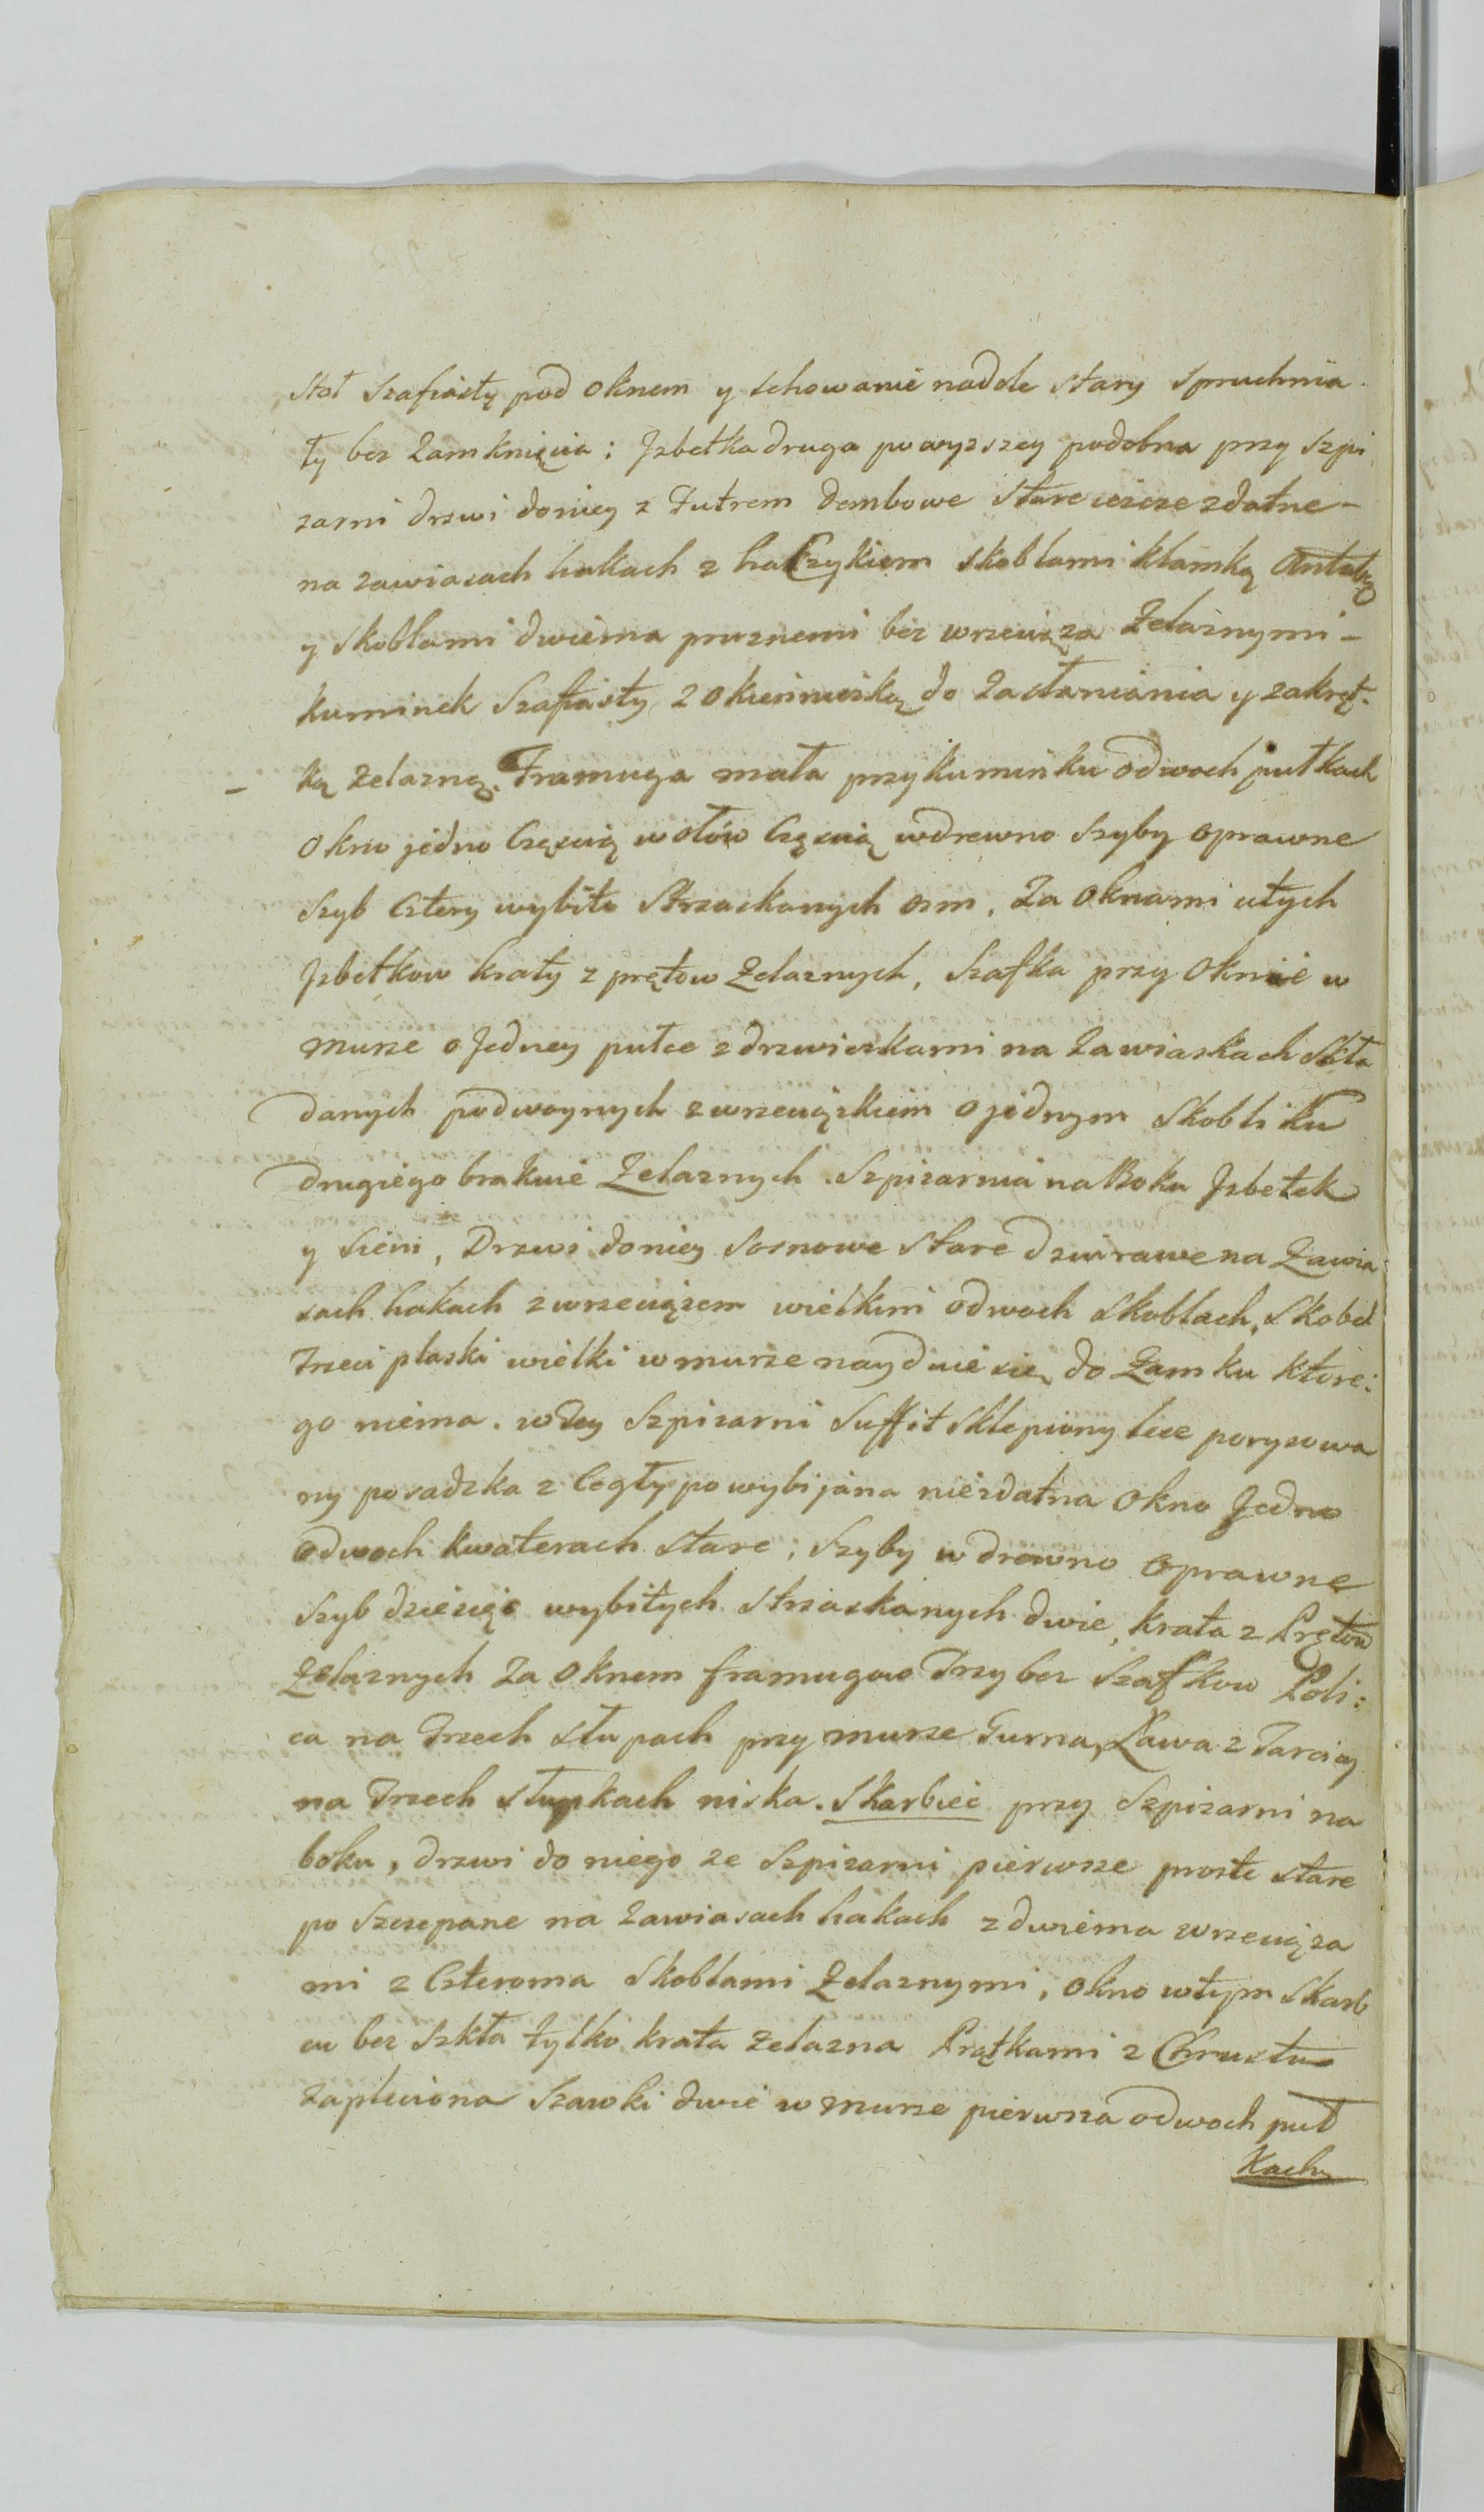 Stoł Szafiasty pod oknem y schowanie nadole stary spruchnia-
ły bez Zamknięcia: Jzbetka druga powyzszey podobna przy Szpi
zarni drzwi doniey z Futrem dembowe Stare iescze zdatne -
na zawiasach hakach z haczykiem skoblami klamką Antabą
y skoblami dwiema pruznemi bez wrzeciąza Zelaznymi -
kuminek Szafiasty z okieniuszką do zasłaniania y zakręt-
- ką zelazną. Framuga mała przykuminku odwoch pułkach
okno jedno Częscią wołów Częscią wdrewno Szyby oprawne
Szyb Cztery wybito Strzaskanych osm, Za oknami utych
Jzbetkow kraty z prętow Zelaznych, Szafka przy oknie w
murze o Jedney pułce zdrzwiczkami na Zawiaskach Skła
danych podwoynych zwrzeciązkiem o jednym skobliku
drugiego brakuie Zelaznych. Szpizarnia naboku Jzbetek
y Sieni, Drzwi doniey Sosnowe stare dziurawe na Zawia-
sach hakach zwrzeciązem wielkim odwoch skoblach, skobel
Trzeci płaski wielki wmurze nayduie się do Zamku które:
go niema. wtey Szpizarni Suffit Sklepiony lecz porysowa
ny posadzka z Cegły powybijana niezdatna okno Jedno
odwoch kwaterach stare; Szyby w drewno oprawne
Szyb dziesięć wybitych strzaskanych dwie, krata z Prętow
Zelaznych Za oknem framugow Trzy bez Szafkow Poli:
ca na Trzech słupach przy murze Gurna, Ława z Tarcicy
na Trzech słupkach niska. Skarbiec przy Szpizarni na
boku, drzwi do niego ze Szpizarni pierwsze proste stare
po szczepane na zawiasach hakach z dwiema wrzeciąza
mi z Czteroma Skoblami Zelaznymi, okno wtym Skarb
cu bez Szkła tylko krata zelazna Prątkami z Chrustu
zapleciona Szawki dwie w murze pierwsza odwoch puł
kach